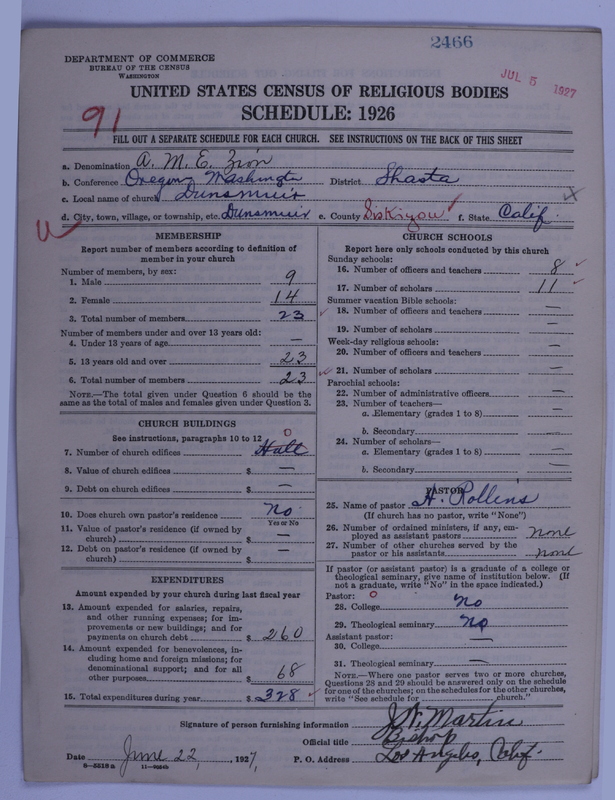 2466
JUL 5 1927
DEPARTMENT OF COMMERCE
BUREAU OF THE CENSUS
WASHINGTON
UNITED STATES CENSUS OF RELIGIOUS BODIES
SCHEDULE: 1926
91
FILL OUT A SEPARATE SCHEDULE FOR EACH CHURCH. SEE INSTRUCTIONS ON THE BACK OF THIS SHEET
a. Denomination A. M. E. Zion
b. Conference Oregon Washingtn District Shasta
c. Local name of church Dunsmuir
d. City, town, village, or township, etc. Dunsmuir e. County Siskiyou f. State Calif
MEMBERSHIP
Report number of members according to definition of
member in your church
Number of members, by sex:
1. Male 9
2. Female 14
3. Total number of members 23
Number of members under and over 13 years old:
4. Under 13 years of age —
5. 13 years old and over 23
6. Total number of members 23
NOTE.—The total given under Question 6 should be the
same as the total of males and females given under Question 3.
CHURCH BUILDINGS
See instructions, paragraphs 10 to 12
0
7. Number of church edifices Hall
8. Value of church edifices $ —
9. Debt on church edifices $ —
10. Does church own pastor's residence No
Yes or No
11. Value of pastor's residence (if owned by
church) $ —
12. Debt on pastor's residence (if owned by
church) $ —
EXPENDITURES
Amount expended by your church during last fiscal year
13. Amount expended for salaries, repairs,
and other running expenses; for im-
provements or new buildings; and for
payments on church debt $ 260
14. Amount expended for benevolences, in-
cluding home and foreign missions; for
denominational support; and for all
other purposes $ 68
15. Total expenditures during year $ 328
CHURCH SCHOOLS
Report here only schools conducted by this church
Sunday schools:
16. Number of officers and teachers 8
17. Number of scholars 11
Summer vacation Bible schools:
18. Number of officers and teachers —
19. Number of scholars —
Week-day religious schools:
20. Number of officers and teachers —
21. Number of scholars —
Parochial schools:
22. Number of administrative officers —
23. Number of teachers—
a. Elementary (grades 1 to 8) —
b. Secondary —
24. Number of scholars—
a. Elementary (grades 1 to 8) —
b. Secondary —
PASTOR
25. Name of pastor H. Rollins
(If church has no pastor, write "None")
26. Number of ordained ministers, if any, em-
ployed as assistant pastors none
27. Number of other churches served by the
pastor or his assistants none
If pastor (or assistant pastor) is a graduate of a college or
theological seminary, give name of institution below. (If
not a graduate, write "No" in the space indicated.)
Pastor: 0
28. College no
29. Theological seminary no
Assistant pastor: —
30. College
31. Theological seminary —
NOTE.—Where one pastor serves two or more churches,
Questions 28 and 29 should be answered only on the schedule
for one of the churches; on the schedules for the other churches,
write "See schedule for church."
Signature of person furnishing information J. W. Martin
Official title Bishop
Date June 22, 1927. P. O. Address Los Angeles, Calif.